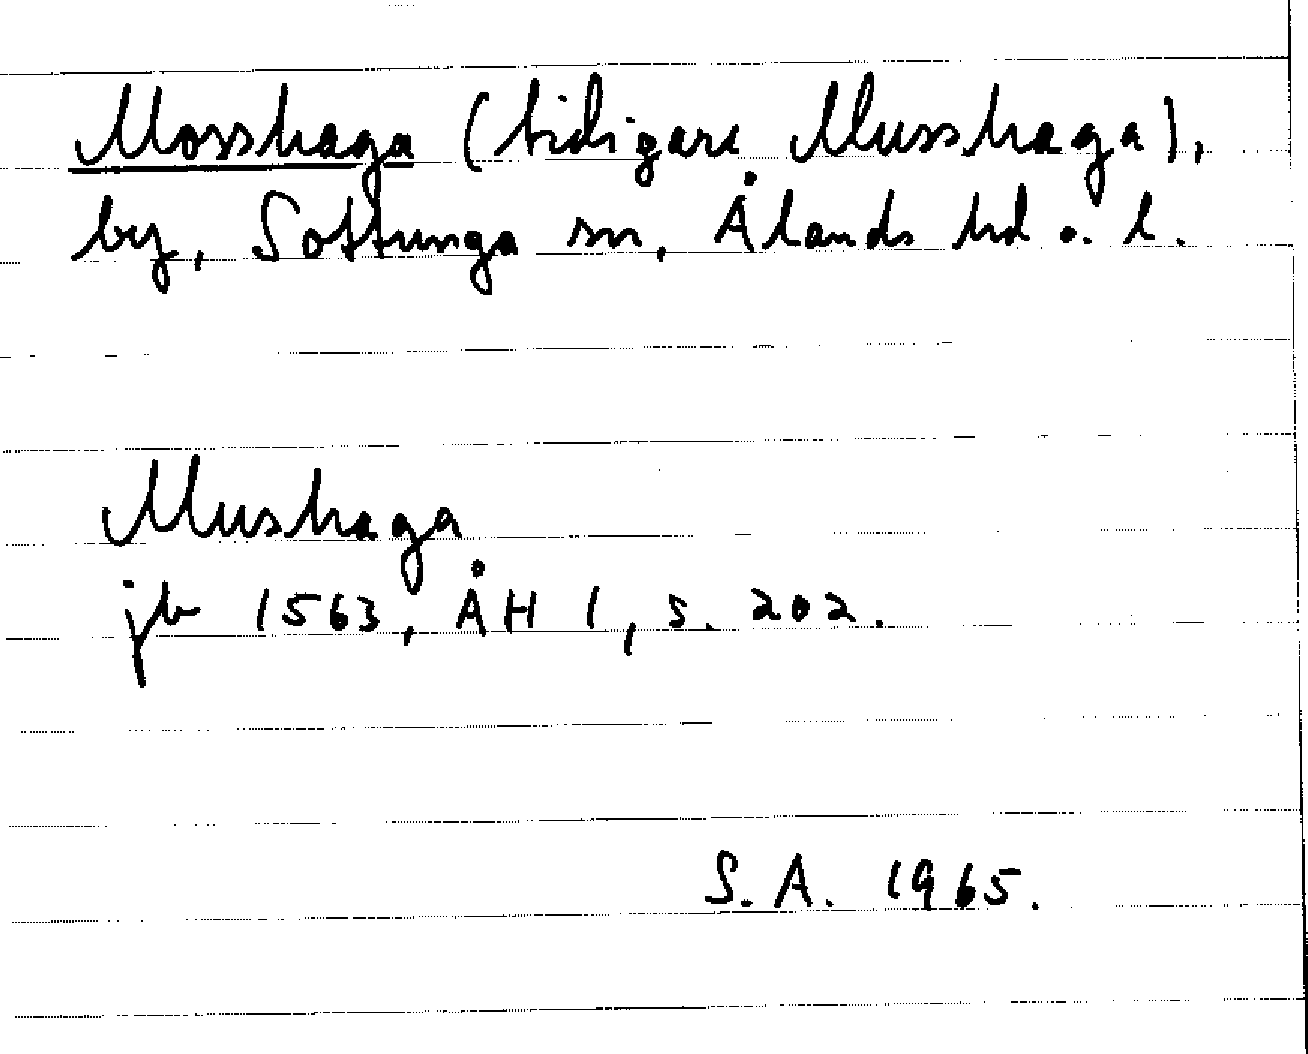 Mosshaga (tidigare Musshaga),
by, Sottunga sn, Ålands hd o. l.
Mushaga
jb 1563, ÅH 1, s. 202.
S. A. 1965.